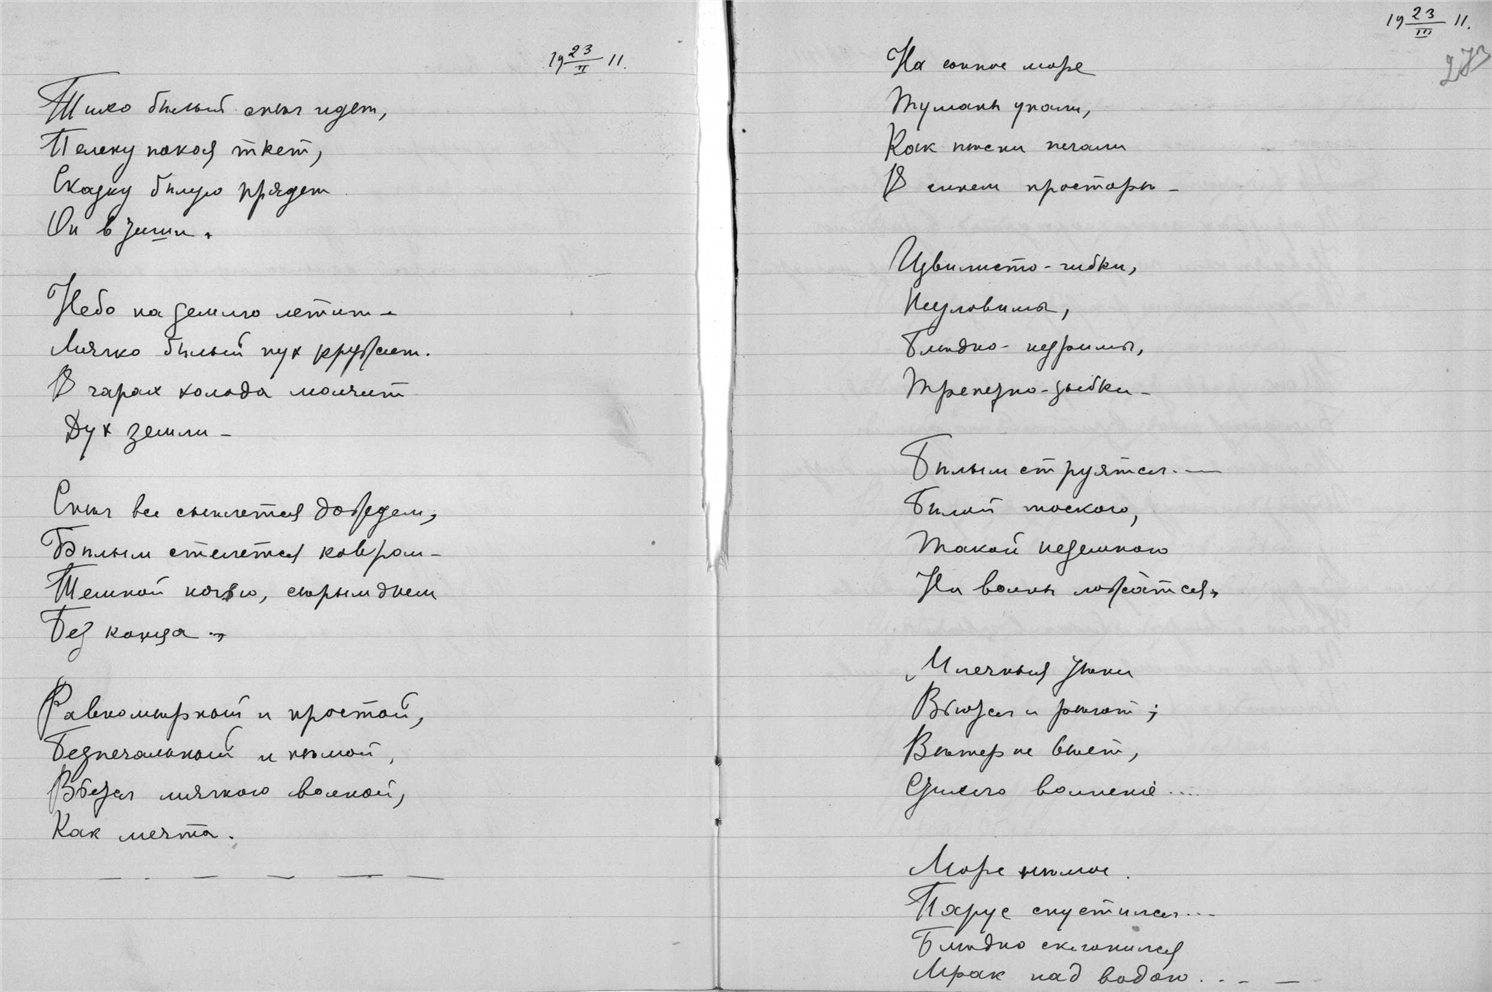 19 23/II 11.
Тихо бѣлый снѣг идет,
Пелену покоя ткет,
Сказку бѣлую прядет
Он в зимѣ.
Небо на землю летит –
Мягко бѣлый пух кружит.
В чарах холода молчит
Дух земли –
Снѣг все сыплется дождем,
Бѣлым стелется ковром –
Темной ночью, сѣрым днем
Без конца.
Равномѣрный и простой,
Безпечальный и нѣмой,
Вьется мягкою волной,
Как мечта.
19 23/III 11.
273
На сонное море
Туманы упали,
Как пѣсни печали
В синем просторѣ –
Извилисто-гибки,
Неуловимы,
Блѣдно-незримы,
Трепетно-зыбки –
Бѣлым струятся. –
Бѣлой тоскою,
Такой неземною
На волны ложатся.
Млечныя
Вьются и рѣют;
Вѣтер не вѣет,
волненіе...
Море нѣмое.
Парус спустился...
Блѣдно склонился
Мрак над водою...